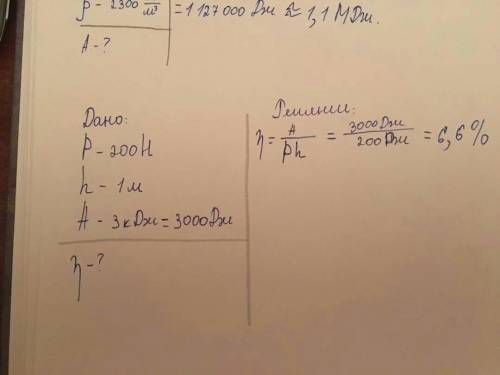 ρ - 2300 /м³ = 1 127 000 Дж ≈ 1,1 МДж.
A - ?
Дано:
P - 200Н
h - 1 м
A - 3 кДж = 3000 Дж
η - ?
η = A / Ph = 3000 Дж / 200 Дж = 6,6 %